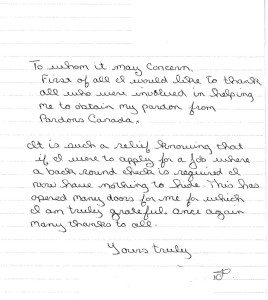 To whom it may Concern.
First of all I would like to thank
all who were involved in helping
me to obtain my pardon from
Pardons Canada.
It is such a relief knowing that
if I were to apply for a job where
a back round check is required I
now have nothing to hide. This has
opened many doors for me for which
I am truly grateful. once again
many thanks to all.
Yours truly